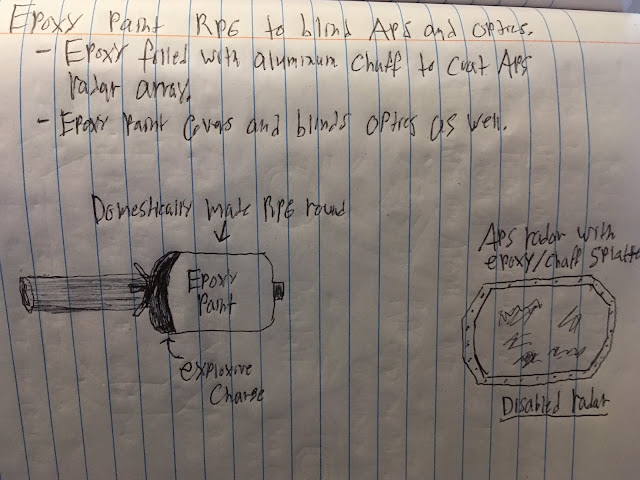 Epoxy Paint RPG to blind APS and optics.
- Epoxy filled with aluminum chaff to coat APS
radar array.
- Epoxy Paint covers and blinds optics as well.
Domestically made RPG round
Epoxy
Paint
explosive
Charge
APS radar with
epoxy/chaff splatter
Disabled radar